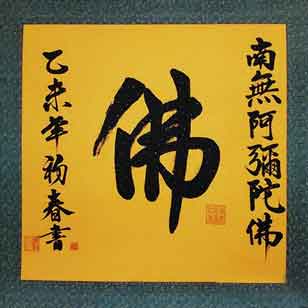 南無阿彌陀佛
佛
乙未年初春書